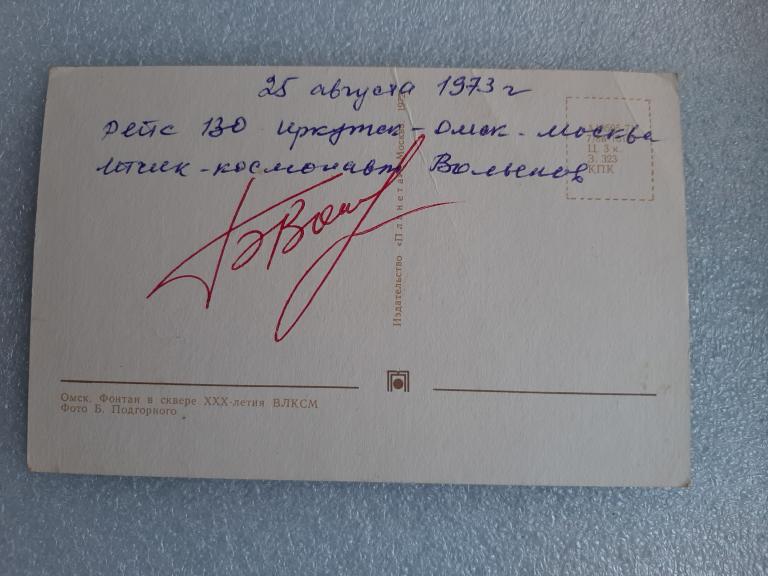 25 августа 1973 г
рейс 130 Иркутск - Омск - Москва
лтчик - космонавт Волынов
БВол
Ц. 3 к.
З. 323
КПК
Издательство «Планета» Москва 197
Омск. Фонтан в сквере XXX-летия ВЛКСМ
Фото Б. Подгорного